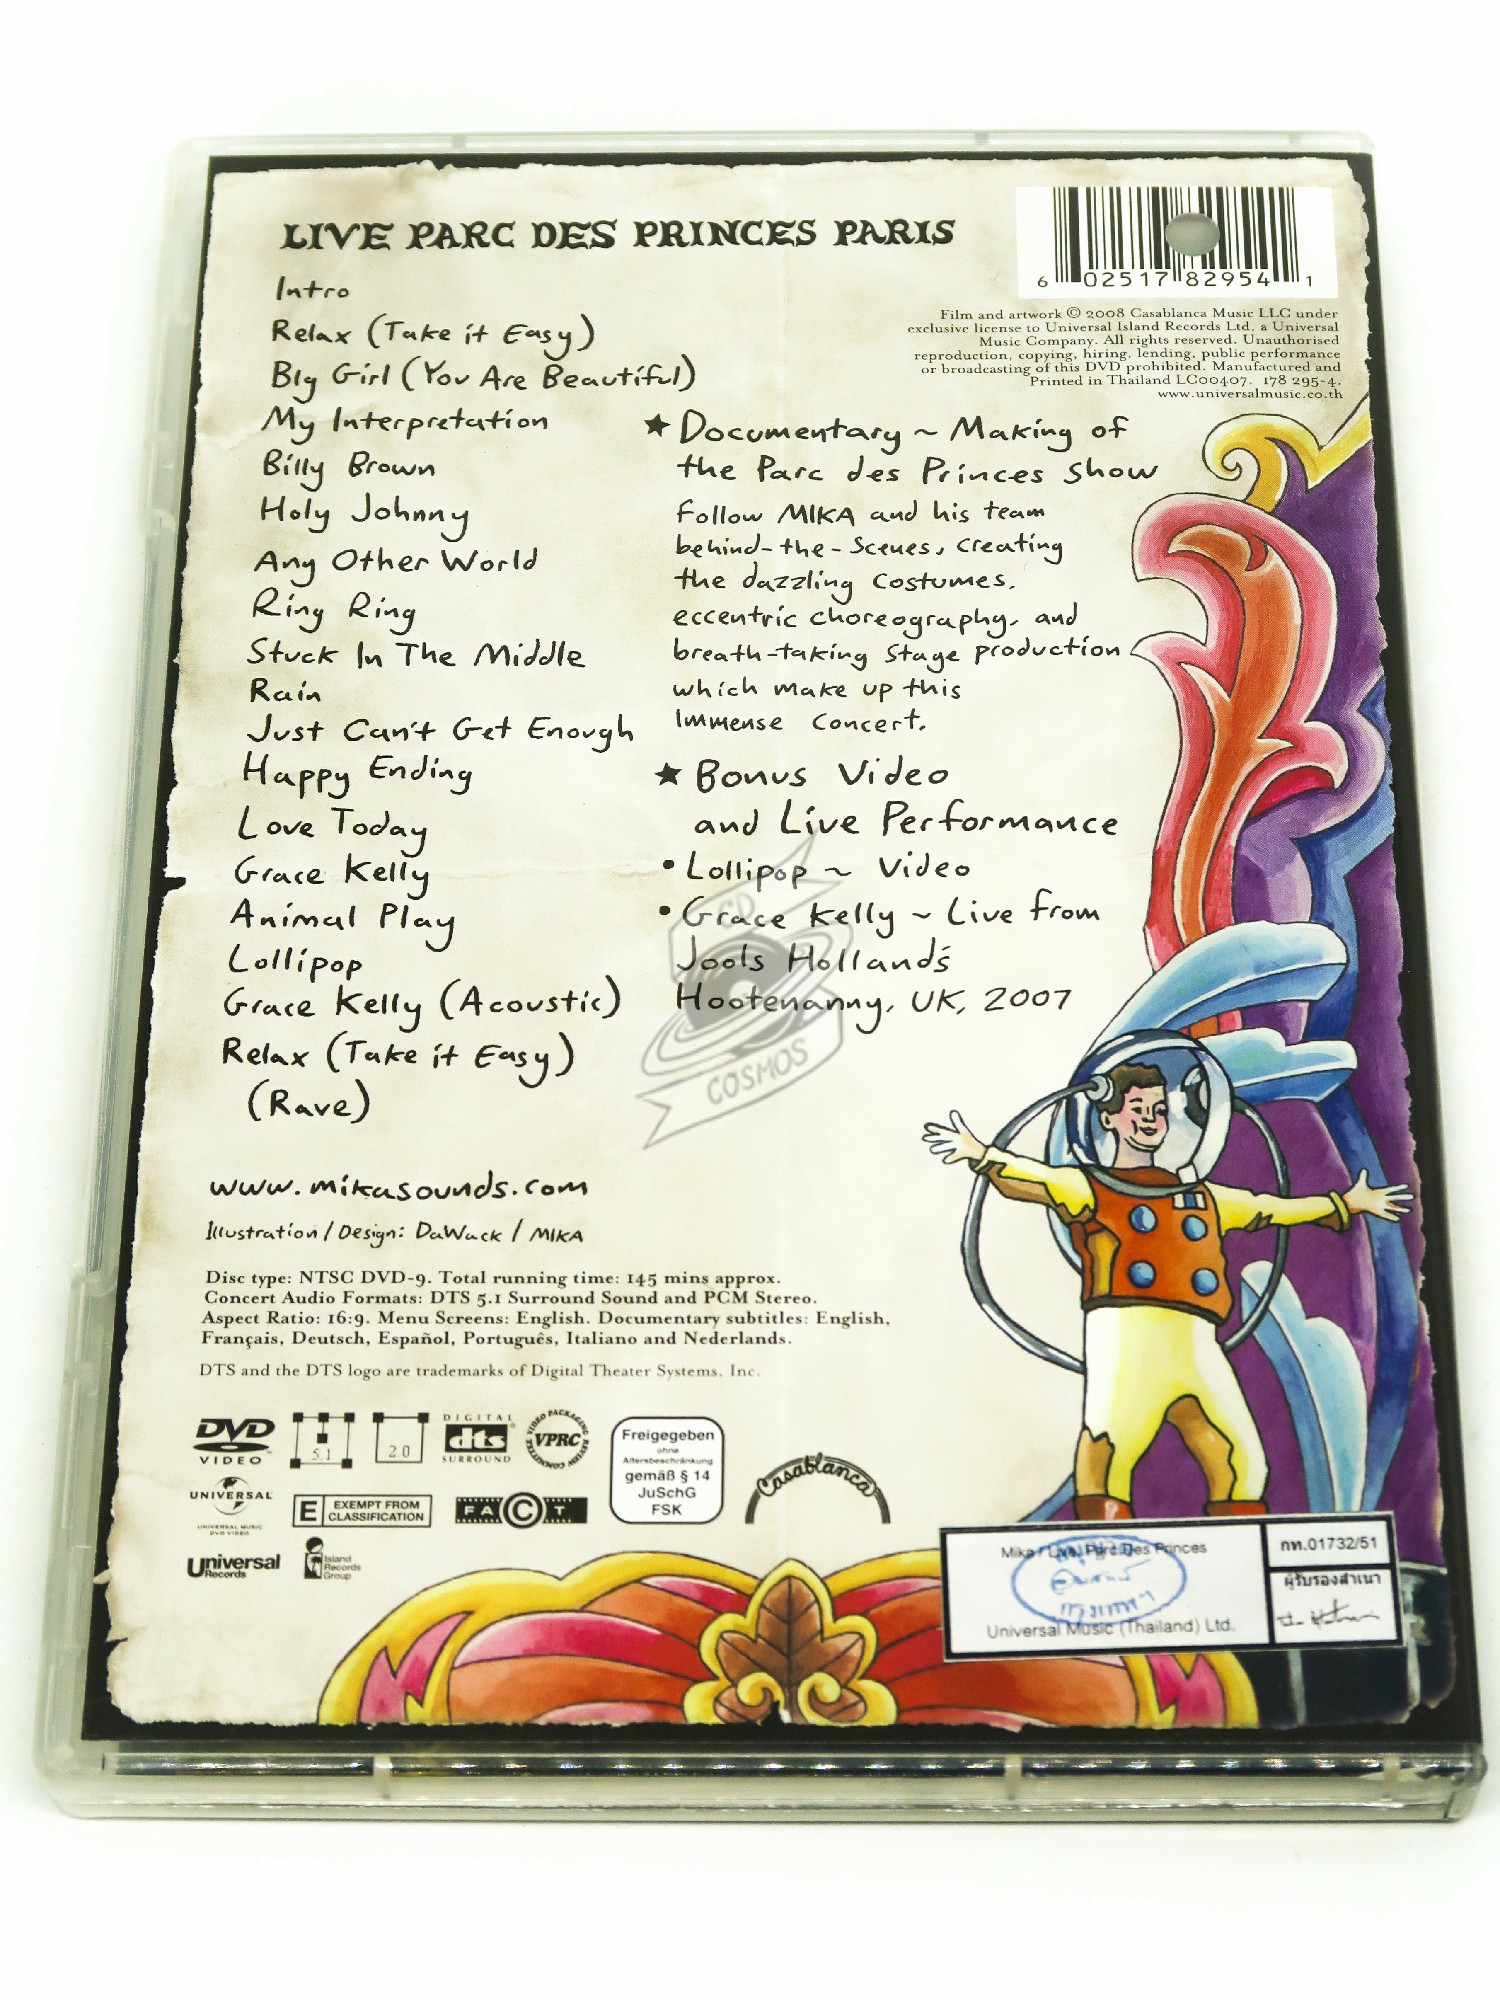 LIVE PARC DES PRINCES PARIS
Intro
Relax (Take it Easy)
Big Girl (You Are Beautiful)
My Interpretation
Billy Brown
Holy Johnny
Any Other World
Ring Ring
Stuck In The Middle
Rain
Just Can't Get Enough
Happy Ending
Love Today
Grace Kelly
Animal Play
Lollipop
Grace Kelly (Acoustic)
Relax (Take it Easy)
(Rave)
www.mikasounds.com
Illustration / Design: DaWack / MIKA
6 02517 82954 1
Film and artwork © 2008 Casablanca Music LLC under
exclusive license to Universal Island Records Ltd, a Universal
Music Company. All rights reserved. Unauthorised
reproduction, copying, hiring, lending, public performance
or broadcasting of this DVD prohibited. Manufactured and
Printed in Thailand LC00407. 178 295-4.
www.universalmusic.co.th
★ Documentary ~ Making of
the Parc des Princes show
Follow MIKA and his team
behind-the-scenes, creating
the dazzling costumes,
eccentric choreography, and
breath-taking stage production
which make up this
immense concert.
★ Bonus Video
and Live Performance
• Lollipop ~ Video
• Grace Kelly ~ Live from
Jools Holland's
Hootenanny, UK, 2007
CD
COSMOS
Disc type: NTSC DVD-9. Total running time: 145 mins approx.
Concert Audio Formats: DTS 5.1 Surround Sound and PCM Stereo.
Aspect Ratio: 16:9. Menu Screens: English. Documentary subtitles: English,
Français, Deutsch, Español, Português, Italiano and Nederlands.
DTS and the DTS logo are trademarks of Digital Theater Systems, Inc.
DVD
VIDEO
5.1
2.0
DIGITAL
dts
SURROUND
VIDEO PACKAGING REVIEW COMMITTEE
VPRC
Freigegeben
ohne
Altersbeschränkung
gemäß § 14
JuSchG
FSK
Casablanca
UNIVERSAL
UNIVERSAL MUSIC
DVD VIDEO
E EXEMPT FROM
CLASSIFICATION
FACT
Universal
Records
Island
Records
Group
Mika / Live Parc Des Princes
Universal Music (Thailand) Ltd.
กท.01732/51
ผู้รับรองสำเนา